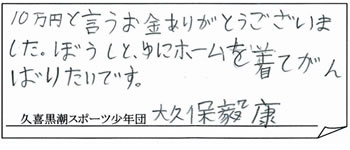 10万円と言うお金ありがとうございま
した。ぼうしと、ゆにホームを着てがん
ばりたいです。
久喜黒潮スポーツ少年団 大久保毅康